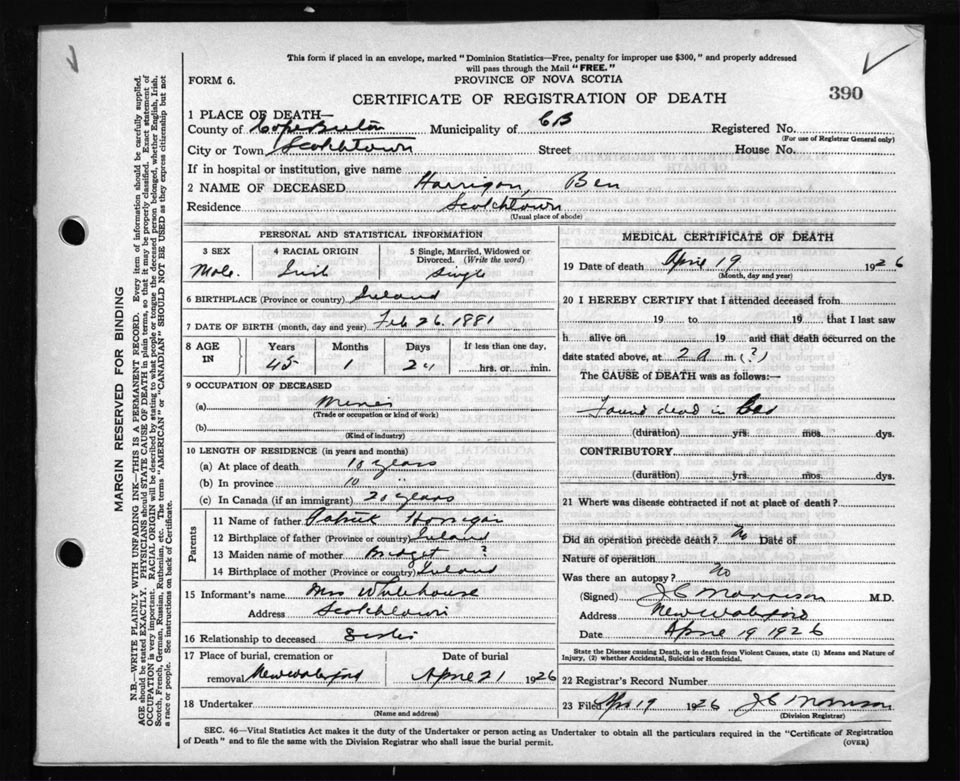 This form if placed in an envelope, marked "Dominion Statistics—Free, penalty for improper use $300," and properly addressed
will pass through the Mail "FREE."
FORM 6.
PROVINCE OF NOVA SCOTIA
390
CERTIFICATE OF REGISTRATION OF DEATH
1 PLACE OF DEATH—
County of Cape Breton Municipality of CB Registered No.
(For use of Registrar General only)
City or Town Scotchtown Street House No.
If in hospital or institution, give name
2 NAME OF DECEASED Harrigan, Ben
Residence Scotchtown
(Usual place of abode)
PERSONAL AND STATISTICAL INFORMATION
3 SEX 4 RACIAL ORIGIN 5 Single, Married, Widowed or
Divorced. (Write the word)
Male. Irish Single
6 BIRTHPLACE (Province or country) Ireland
7 DATE OF BIRTH (month, day and year) Feb 26. 1881
8 AGE IN Years Months Days If less than one day,
45 1 hrs. or min.
9 OCCUPATION OF DECEASED
(a) Miner
(Trade or occupation or kind of work)
(b)
(Kind of industry)
10 LENGTH OF RESIDENCE (in years and months)
(a) At place of death 10 years
(b) In province 10 "
(c) In Canada (if an immigrant) 20 years
Parents
11 Name of father Patrick Horrigan
12 Birthplace of father (Province or country) Ireland
13 Maiden name of mother Bridget ?
14 Birthplace of mother (Province or country) Ireland
15 Informant's name Mrs Whitehouse
Address Scotchtown
16 Relationship to deceased Sister
17 Place of burial, cremation or Date of burial
removal New Waterford April 21 1926
18 Undertaker
(Name and address)
MEDICAL CERTIFICATE OF DEATH
19 Date of death April 19 1926
(Month, day and year)
20 I HEREBY CERTIFY that I attended deceased from
19 to 19 that I last saw
h alive on 19 and that death occurred on the
date stated above, at 2 a m. (?)
The CAUSE of DEATH was as follows:—
Found dead in Bed
(duration) yrs. mos. dys.
CONTRIBUTORY
(duration) yrs. mos. dys.
21 Where was disease contracted if not at place of death?
Did an operation precede death? No Date of
Nature of operation
Was there an autopsy? No
(Signed) J C Morrison M.D.
Address New Waterford
Date April 19 1926
State the Disease causing Death, or in death from Violent Causes, state (1) Means and Nature of
Injury, (2) whether Accidental, Suicidal or Homicidal.
22 Registrar's Record Number
23 Filed Apr 19 1926 J C Morrison
(Division Registrar)
SEC. 46—Vital Statistics Act makes it the duty of the Undertaker or person acting as Undertaker to obtain all the particulars required in the "Certificate of Registration
of Death" and to file the same with the Division Registrar who shall issue the burial permit. (OVER)
MARGIN RESERVED FOR BINDING
N.B.—WRITE PLAINLY WITH UNFADING INK—THIS IS A PERMANENT RECORD. Every item of information should be carefully supplied.
AGE should be stated EXACTLY. PHYSICIANS should STATE CAUSE OF DEATH in plain terms, so that it may be properly classified. Exact statement of
OCCUPATION is very important. RACIAL ORIGIN will be described by stating to what people or tongue the deceased person belonged, whether English, Irish,
Scotch, French, German, Russian, Ruthenian, etc. The terms "AMERICAN" or "CANADIAN" SHOULD NOT BE USED as they express citizenship but not
a race or people. See instructions on back of Certificate.